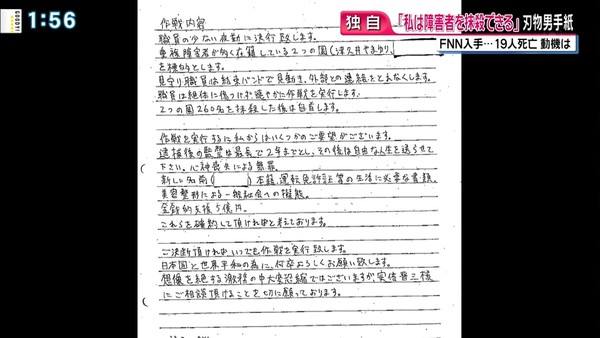 1:56
独自
「私は障害者を抹殺できる」刃物男手紙
FNN入手…19人死亡 動機は
作戦内容
職員の少ない夜勤に決行致します。
重複障害者が多く在籍している2つの園(津久井やまゆり、
を標的とします。
見守り職員は結束バンドで見動き、外部との連絡をとれなくします。
職員は絶体に傷つけず速やかに作戦を実行します。
2つの園260名を抹殺した後は自首します。
作戦を実行するに私からはいくつかのご要望がございます。
逮捕後の監禁は最長で2年までとし、その後は自由な人生を送らせて
下さい。心神喪失による無罪。
新しい名前( )本籍、運転免許証等の生活に必要な書類。
美容整形による一般社会への擬態。
金銭的支援5億円。
これらを確約して頂ければと考えております。
ご決断頂ければ、いつでも作戦を実行致します。
日本国と世界平和の為に、何卒よろしくお願い致します。
想像を絶する激務の中大変恐縮ではございますが、安倍晋三様
にご相談頂けることを切に願っております。